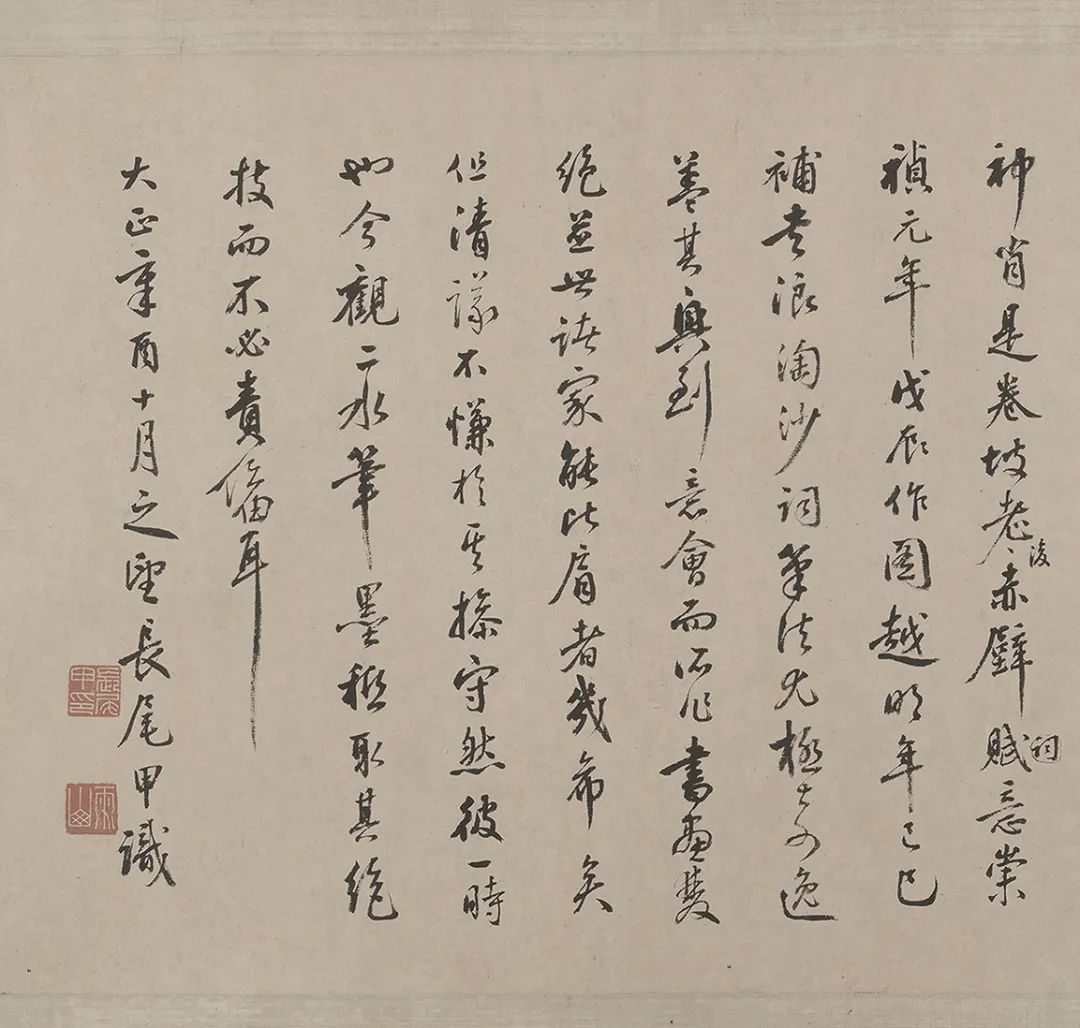 神肖是卷坡老後赤壁賦詞意崇
禎元年戊辰作圖越明年己巳
補書浪淘沙詞筆法尤極奇逸
蓋其興到意會而所作書畫雙
絕並世諸家能比肩者幾希矣
但清議不慊於其操守然彼一時
也今觀二水筆墨秪取其絕
技而不必責備耳
大正辛酉十月之望長尾甲識
長尾甲印
雨山